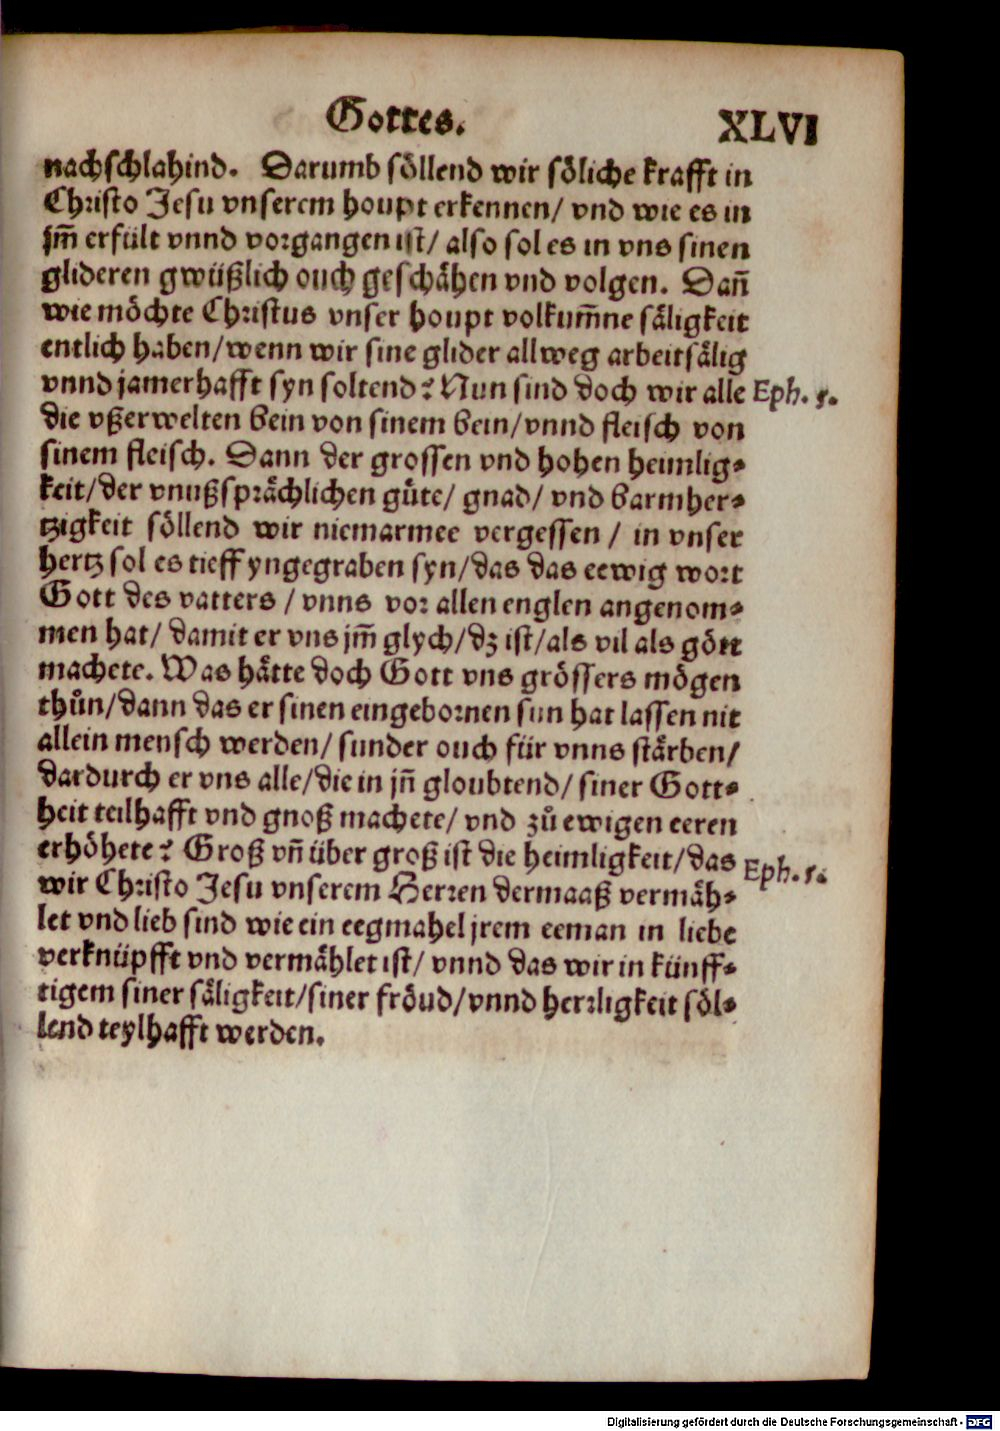 Gottes.
XLVI
nachschlahind. Darumb söllend wir söliche krafft in
Christo Jesu vnserem houpt erkennen/ vnd wie es in
jm̃ erfült vnnd vorgangen ist/ also sol es in vns sinen
glideren gwüßlich ouch geschähen vnd volgen. Dañ
wie möchte Christus vnser houpt volkum̃ne säligkeit
entlich haben/wenn wir sine glider allweg arbeitsälig
vnnd jamerhafft syn soltend? Nun sind doch wir alle
Eph. 5.
die vßerwelten bein von sinem bein/vnnd fleisch von
sinem fleisch. Dann der grossen vnd hohen heimlig⸗
keit/der vnußsprächlichen gůte/ gnad/ vnd barmher⸗
tzigkeit söllend wir niemarmee vergessen / in vnser
hertz sol es tieff yngegraben syn/das das eewig wort
Gott des vatters / vnns vor allen englen angenom⸗
men hat/ damit er vns jm̃ glych/dz ist/als vil als gött
machete. Was hätte doch Gott vns grössers mögen
thůn/dann das er sinen eingebornen sun hat lassen nit
allein mensch werden/ sunder ouch für vnns stärben/
dardurch er vns alle/die in jñ gloubtend/ siner Gott⸗
heit teilhafft vnd gnoß machete/ vnd zů ewigen eeren
erhöhete? Groß vñ über groß ist die heimligkeit/das
Eph. 5.
wir Christo Jesu vnserem Herren dermaaß vermäh⸗
let vnd lieb sind wie ein eegmahel jrem eeman in liebe
verknüpfft vnd vermählet ist/ vnnd das wir in künff⸗
tigem siner säligkeit/siner fröud/vnnd herrligkeit söl⸗
lend teylhafft werden.
Digitalisierung gefördert durch die Deutsche Forschungsgemeinschaft - DFG